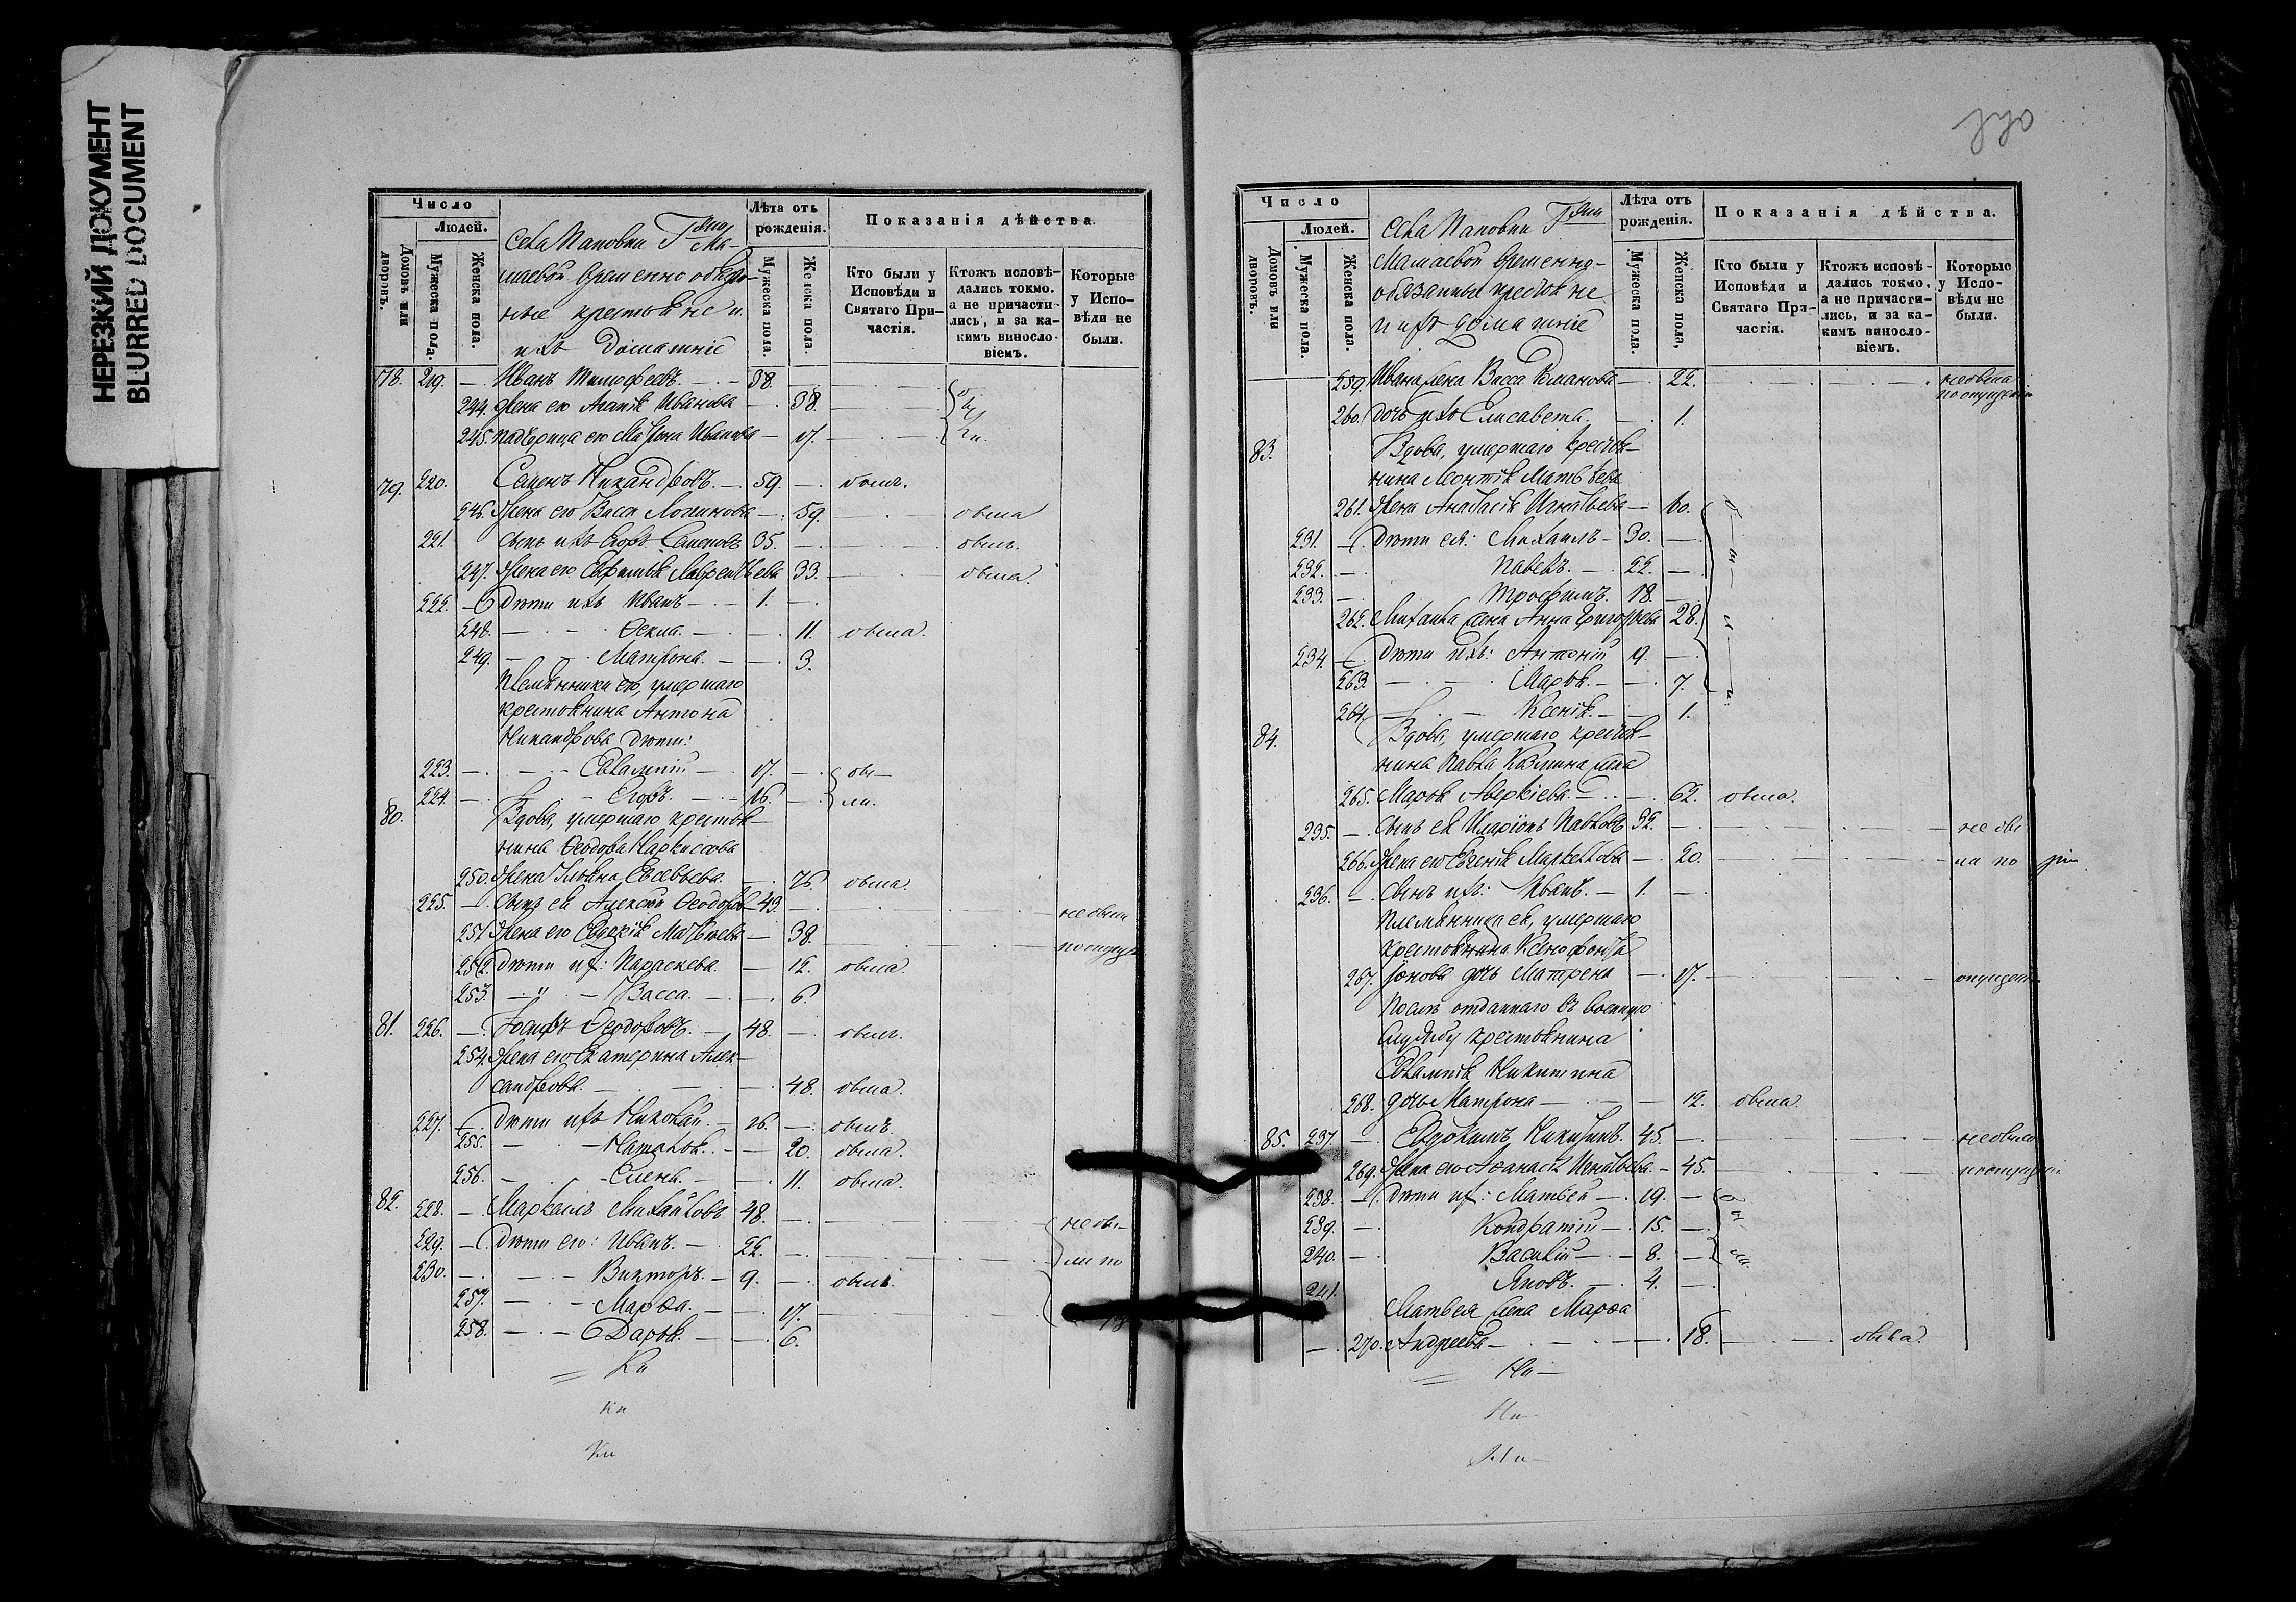 НЕРЕЗКИЙ ДОКУМЕНТ
BLURRED DOCUMENT
Число
Людей.
Домовъ или дворовъ.
Мужеска пола.
Женска пола.
Села Пановки Г
маевой временно обязан-
ные крестьяне и
ихъ домашніе
Лѣта отъ рожденія.
Мужеска пола.
Женска пола.
Показанія дѣйства.
Кто были у Исповѣди и Святаго При-частія.
Ктожъ исповѣ-дались токмо. а не причасти-лись, и за ка-кимъ винословіемъ.
Которые у Испо-вѣди не были.
78. 219. — Иванъ Тимофеевъ. — 38. —
244. Жена его Агапія Иванова — 38.
245. Падчерица его Матрона Иванова — 17.
79. 220. Семенъ Никандровъ. — 59. — былъ.
246. Жена его Васса Логинова — 59. — была
221. Сынъ ихъ Егоръ Семеновъ 35. — былъ.
247. Жена его Лаврентьева 33. — была.
222. — Дѣти ихъ Иванъ — 1. —
248. — Ѳекла. — 11. была.
249. — Матрона. — 3.
Племянники его, умершаго
крестьянина Антона
Никандрова дѣти:
223. — Евлампій — 17. — бы-
224. — Егоръ. — 16. — ли.
80. Вдова, умершаго крестья-
нина Ѳеодора Наркисова
250. Жена Ульяна Евсевьева. — 76. была.
225. — Сынъ ея Алексѣй Ѳеодоровъ 43. — не были
251. Жена его Евдокія Матвѣева — 38. —
252. Дѣти их: Параскева. — 12. была.
253. — " — Васса. — 6.
81. 226. — Іосифъ Ѳеодоровъ. — 48. — былъ.
254. Жена его Екатерина Алек-
сандрова. — 48. была.
227. — Дѣти ихъ Николай. — 26. — былъ.
255. — Наталья. — 20. была.
256. — Елена. — 11. была.
82. 228. — Маркелъ Михайловъ 48. — не бы-
229. — Дѣти его: Иванъ. — 22. — ли по
230. — Викторъ. — 9. — былъ.
257. — Марѳа. — 17.
258. — Дарья. — 6.
Число
Людей.
Домовъ или дворовъ.
Мужеска пола.
Женска пола.
Села Пановки Г
Мамаевой временно-
обязанные крестьяне
и ихъ домашніе
Лѣта отъ рожденія.
Мужеска пола.
Женска пола,
Показанія дѣйства.
Кто были у Исповѣди и Святаго При-частія.
Ктожъ исповѣ-дались токмо, а не причасти-лись, и за ка-кимъ винословіемъ.
Которые у Испо-вѣди не были.
259. Ивана жена Васса Романова — 22. — не была
по опущенію
260. Дочь ихъ Елисавета. — 1.
83. Вдова, умершаго крестья-
нина Леонтія Матвѣева
261. Жена Анастасія Игнатьева — 60.
231. — Дѣти ея: Михаилъ — 30. —
232. — Павелъ. — 22. —
233. — Трофимъ. 18. —
262. Михаила жена Анна Григорьева 28.
234. — Дѣти ихъ: Антоній 9. —
263. — Марья. — 7.
264. — Ксенія. — 1.
84. Вдова, умершаго крестья-
нина Павла Козмина жена
265. Марья Аверкіева. — 62. была.
235. — Сынъ ея Иларіонъ Павловъ 32. — не бы
266. Жена его Евгенія Маркеллова — 20. — ли по
236. — Сынъ ихъ: Иванъ. — 1. —
Племянника ея, умершаго
крестьянина Ксенофонта
267. дочь Матрена — 17. — опущен
Послѣ отданнаго въ военную
службу крестьянина
Евлампія Никитина
268. дочь Матрона — 12. была.
85. 237. — Евдокимъ Никитинъ. 45. — не были
269. Жена его Аѳанасія Игнатьева. — 45. — по опущен
238. — Дѣти их: Матвѣй — 19. —
239. — Кондратій — 15. —
240. — Василій — 8. —
241. Яковъ. — 4. —
Матвея жена Марѳа
— 270. Андреева — 18. — была.